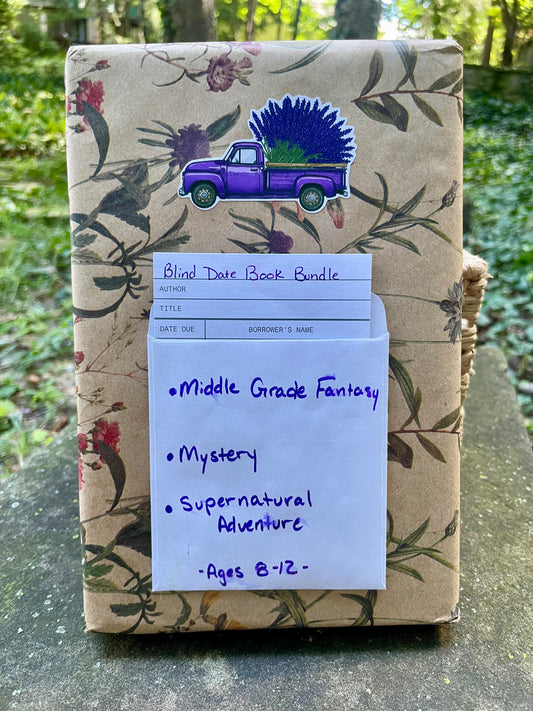 Blind Date Book Bundle
AUTHOR
TITLE
DATE DUE BORROWER'S NAME
• Middle Grade Fantasy
• Mystery
• Supernatural
Adventure
- Ages 8-12 -